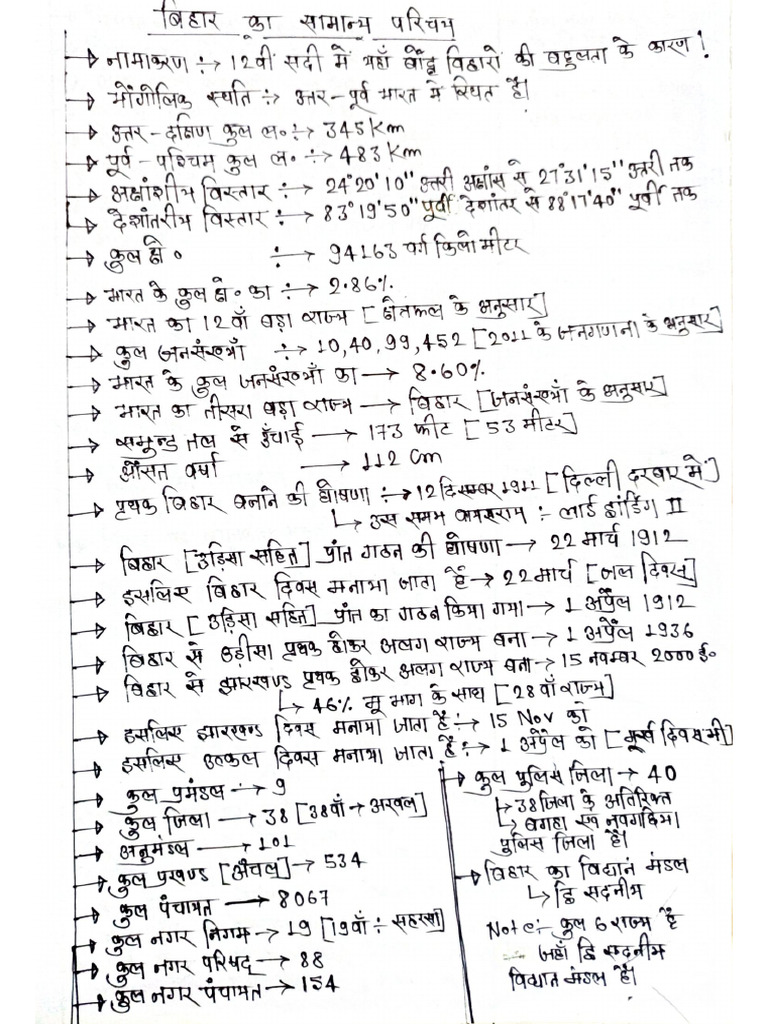 बिहार का सामान्य परिचय
नामाकरण ÷→ 12वीं सदी में यहाँ बौद्ध विहारों की बहुलता के कारण!
भौगोलिक स्थति ÷→ उत्तर-पूर्व भारत में स्थित है।
उत्तर-दक्षिण कुल ल० ÷→ 345 Km
पूर्व-पश्चिम कुल ल० ÷→ 483 Km
अक्षांशीय विस्तार ÷→ 24°20'10" उत्तरी अक्षांस से 27°31'15" उत्तरी तक
देशांतरीय विस्तार ÷→ 83°19'50" पूर्वी देशांतर से 88°17'40" पूर्वी तक
कुल क्षे० ÷→ 94163 वर्ग किलोमीटर
भारत के कुल क्षे० का ÷→ 2.86%
भारत का 12वाँ बड़ा राज्य [क्षेत्रफल के अनुसार]
कुल जनसंख्याँ ÷→ 10,40,99,452 [2011 के जनगणना के अनुसार]
भारत के कुल जनसंख्याँ का → 8.60%
भारत का तीसरा बड़ा राज्य → बिहार [जनसंख्याँ के अनुसार]
समुन्द्र तल से ऊँचाई → 173 फीट [53 मीटर]
औसत वर्षा → 112 cm
पृथक बिहार बनाने की घोषणा ÷→ 12 दिसम्बर 1911 [दिल्ली दरबार में]
↳ उस समय वायसराय ÷ लार्ड हार्डिंग II
बिहार [उड़िसा सहित] प्रांत गठन की घोषणा → 22 मार्च 1912
इसलिए बिहार दिवस मनाया जाता है → 22 मार्च [जल दिवस]
बिहार [उड़िसा सहित] प्रांत का गठन किया गया → 1 अप्रैल 1912
बिहार से उड़ीसा पृथक होकर अलग राज्य बना → 1 अप्रैल 1936
बिहार से झारखण्ड पृथक होकर अलग राज्य बना → 15 नवम्बर 2000 ई०
↳ 46% भू भाग के साथ [28वाँ राज्य]
इसलिए झारखण्ड दिवस मनाया जाता है ÷→ 15 Nov को
इसलिए उत्कल दिवस मनाया जाता है ÷→ 1 अप्रैल को [मूर्ख दिवस भी]
कुल प्रमंडल → 9
कुल जिला → 38 [38वाँ → अरवल]
अनुमंडल → 101
कुल प्रखण्ड [अँचल] → 534
कुल पंचायत → 8067
कुल नगर निगम → 19 [19वाँ ÷ सहरसा]
कुल नगर परिषद् → 88
कुल नगर पंचायत → 154
कुल पुलिस जिला → 40
↳ 38 जिला के अतिरिक्त
↳ बगहा एवं नवगछिया
पुलिस जिला है।
बिहार का विधान मंडल
↳ द्वि सदनीय
Note ÷ कुल 6 राज्य है
जहाँ द्वि सदनीय
विधान मंडल है।